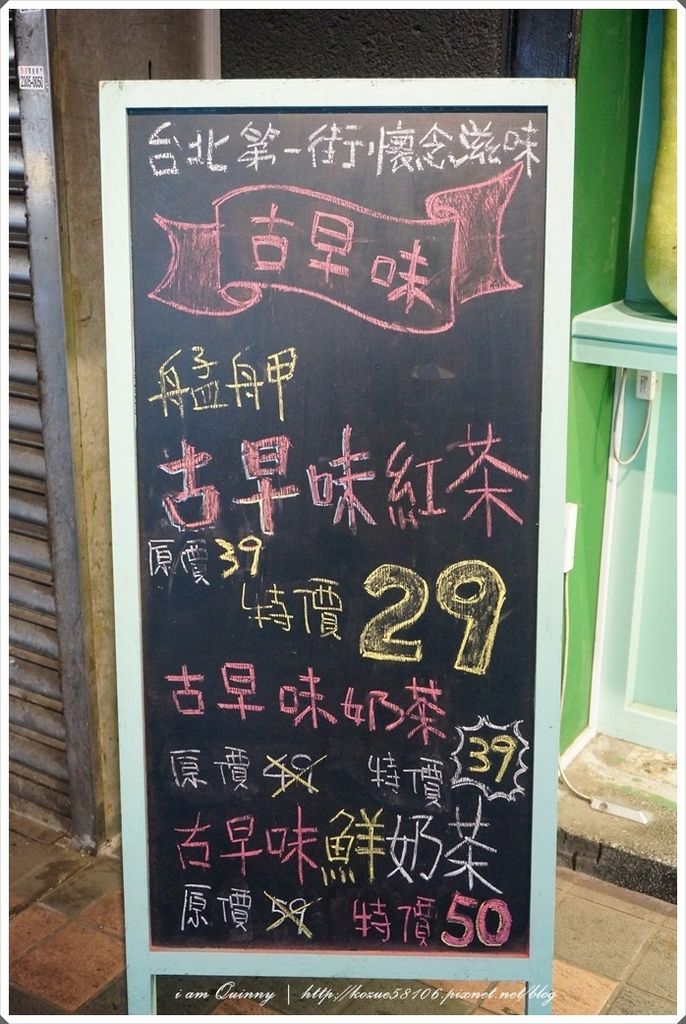 台北第一街懷念滋味
古早味
艋舺
古早味紅茶
原價39
特價29
古早味奶茶
原價49 特價39
古早味鮮奶茶
原價59 特價50
i am Quinny | http://kozue58106.pixnet.net/blog
2305-0050